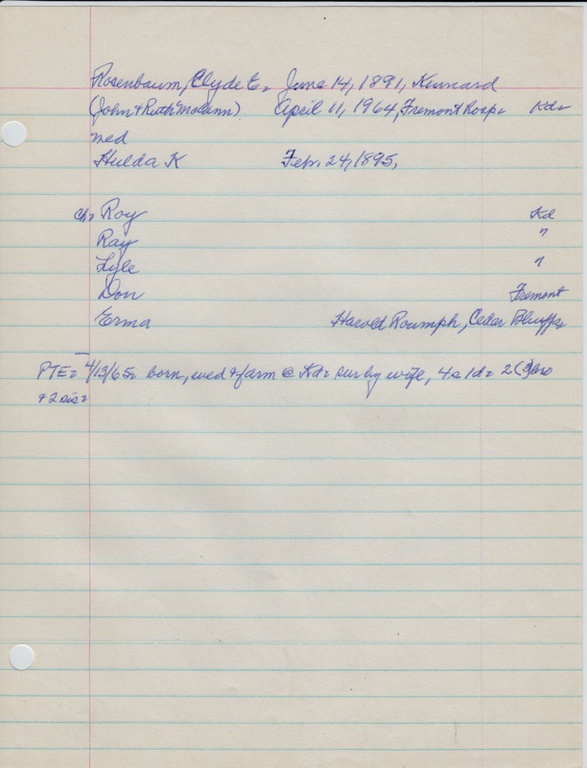 Rosenbaum, Clyde E. June 14, 1891, Kennard
(John & Ruth McCann) April 11, 1964, Fremont Hosp. Kd.
wed
Hulda K Feb. 24, 1895,
Ch. Roy Kd
Ray "
Lyle "
Don Fremont
Erma Harold Roumph, Cedar Bluffs
PTE. 4/13/65. born, wed & farm @ Kd. sur by wife, 4s 1d. 2 bro
& 2 sis.